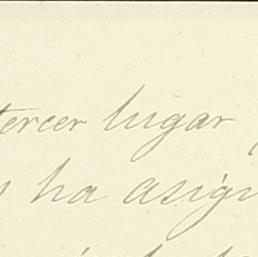 tercer lugar
ha asig